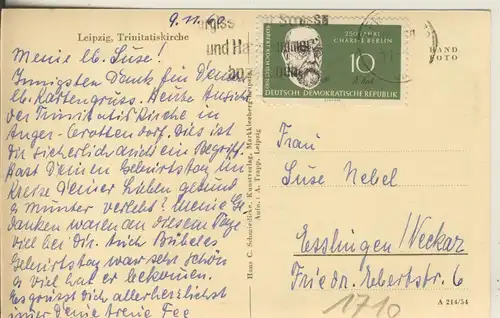 9.11.60
Leipzig, Trinitatiskirche
Meine lb. Suse!
Innigsten Dank für Deinen
lb. Kartengruss. Heute Ansicht
der Trinitatiskirche in
Anger-Crottendorf. Dies ist
Dir sicherlich auch ein Begriff.
Hast Deinen Geburtstag im
Kreise Deiner Lieben gesund
u. munter verlebt? Meine Ge-
danken waren an diesem Tage
viel bei Dir. Auch
Geburtstag war sehr schön
u. viel hat er bekommen.
Es grüsst Dich allerherzlichst
immer Deine treue Fee
Hans C. Schmiedicke, Kunstverlag, Markkleeberg bei Leipzig
Aufn.: A. Trapp, Leipzig
und
250 JAHRE
CHARITÉ BERLIN
10
DEUTSCHE DEMOKRATISCHE REPUBLIK
HAND
FOTO
Frau
Suse Nebel
Esslingen/Neckar
Friedr. Ebertstr. 6
1710
A 214/54